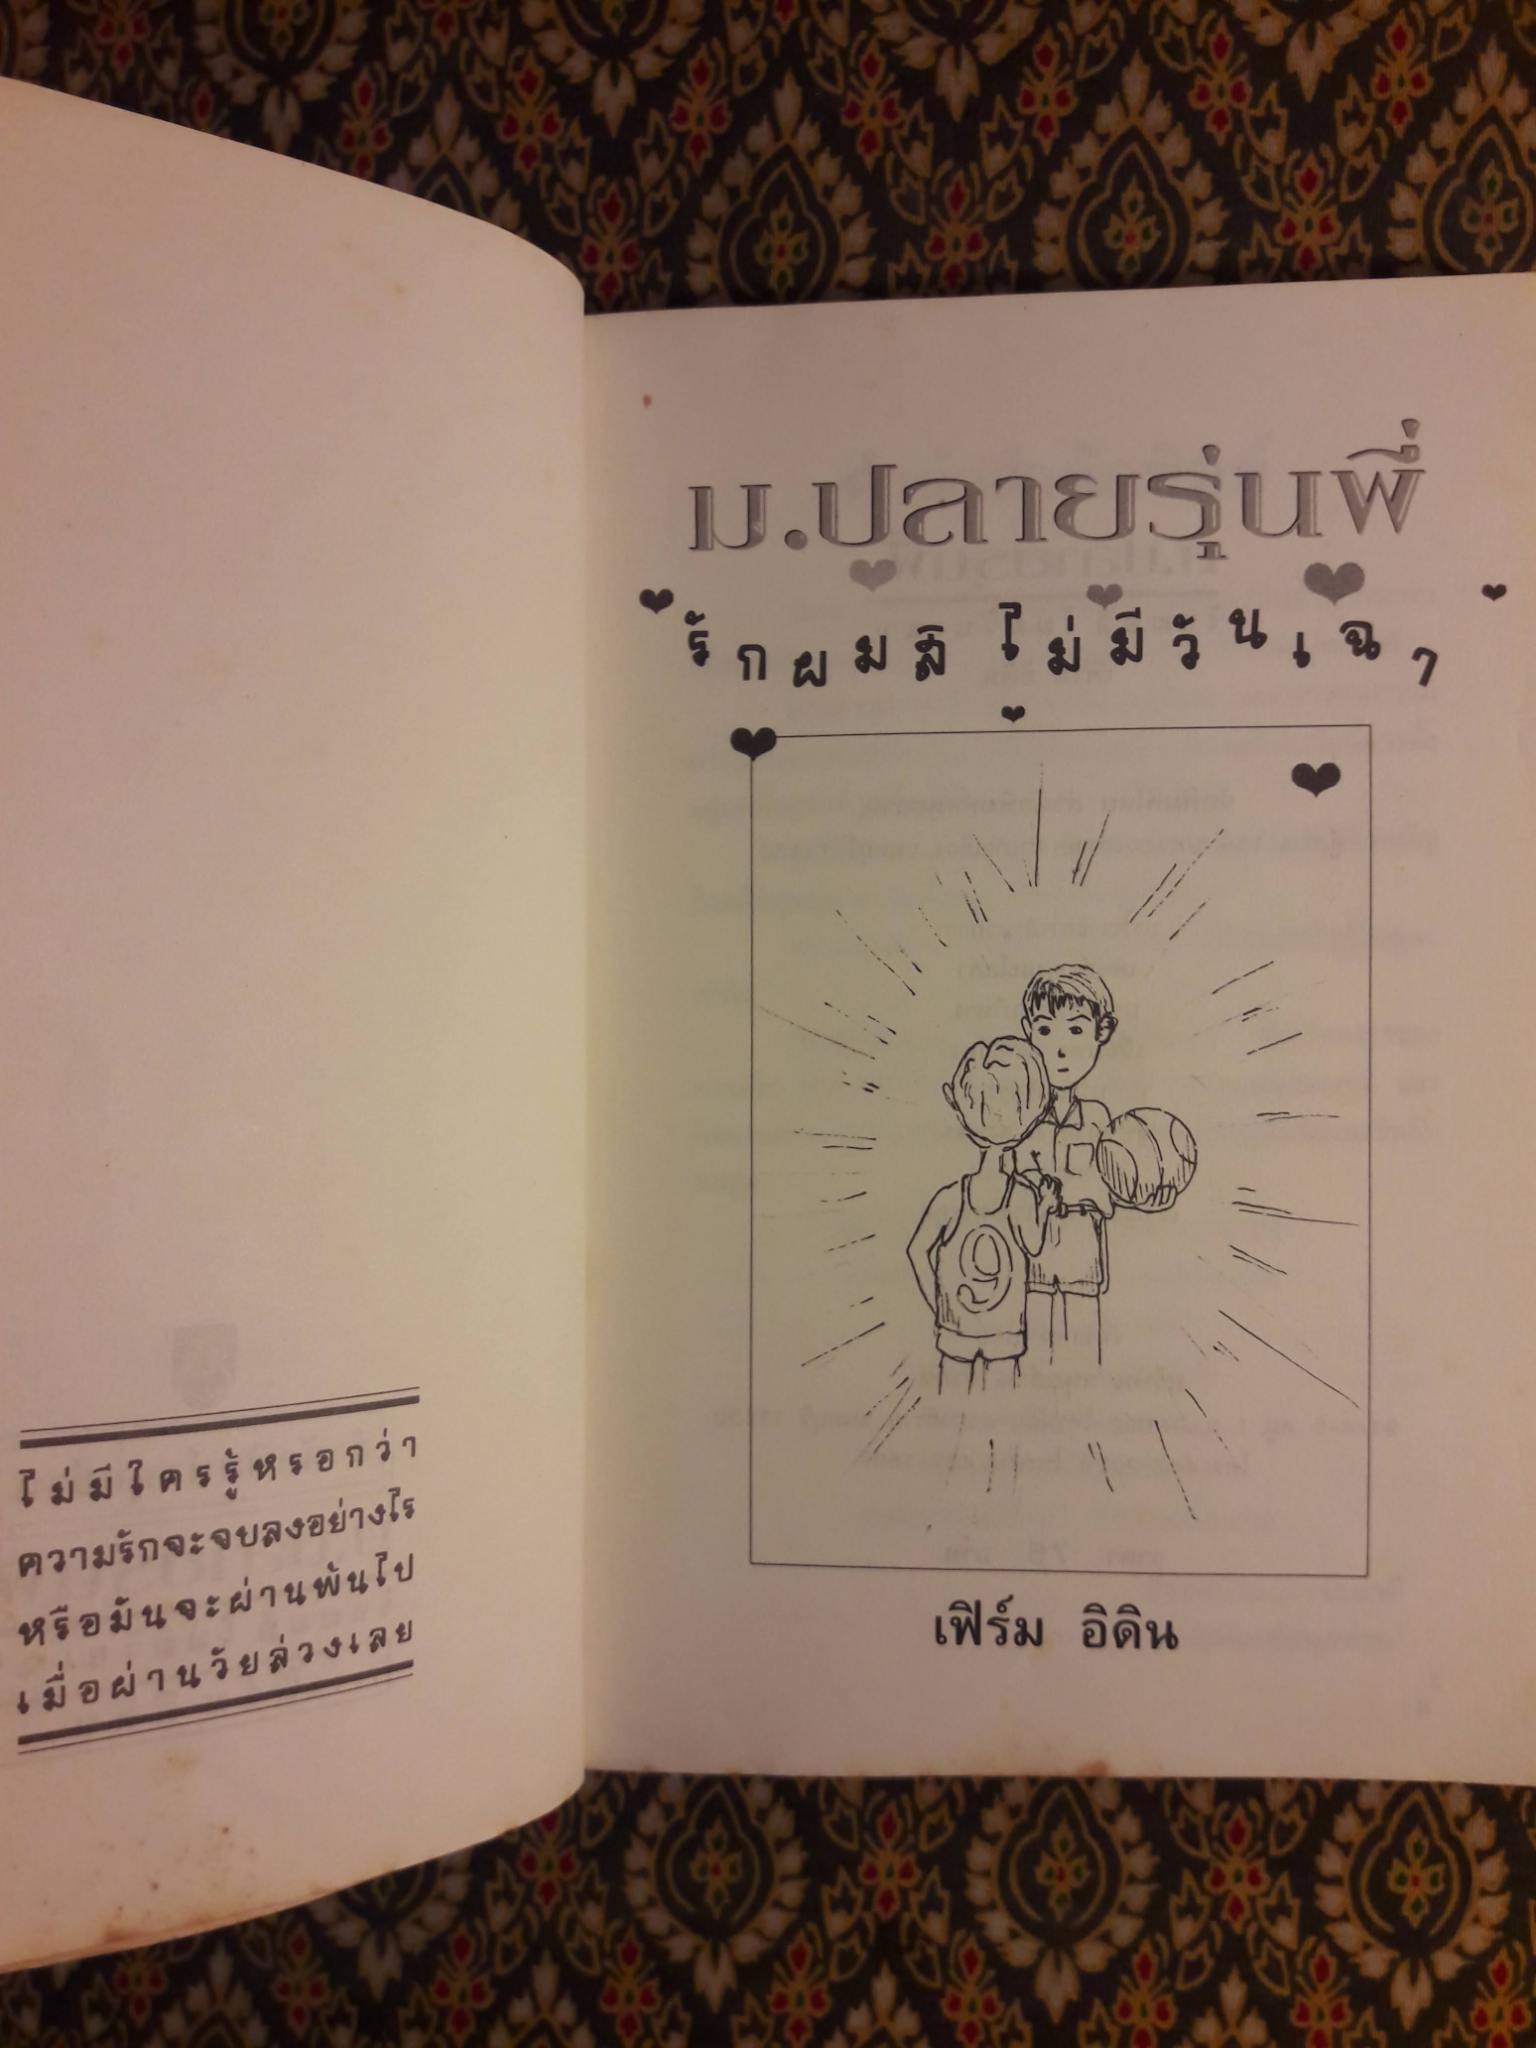 ไม่มีใครรู้หรอกว่า
ความรักจะจบลงอย่างไร
หรือมันจะผ่านพ้นไป
เมื่อผ่านวัยล่วงเลย
ม.ปลายรุ่นพี่
รักผมสิ ไม่มีวันเฉา
9
เฟิร์ม อิดิน